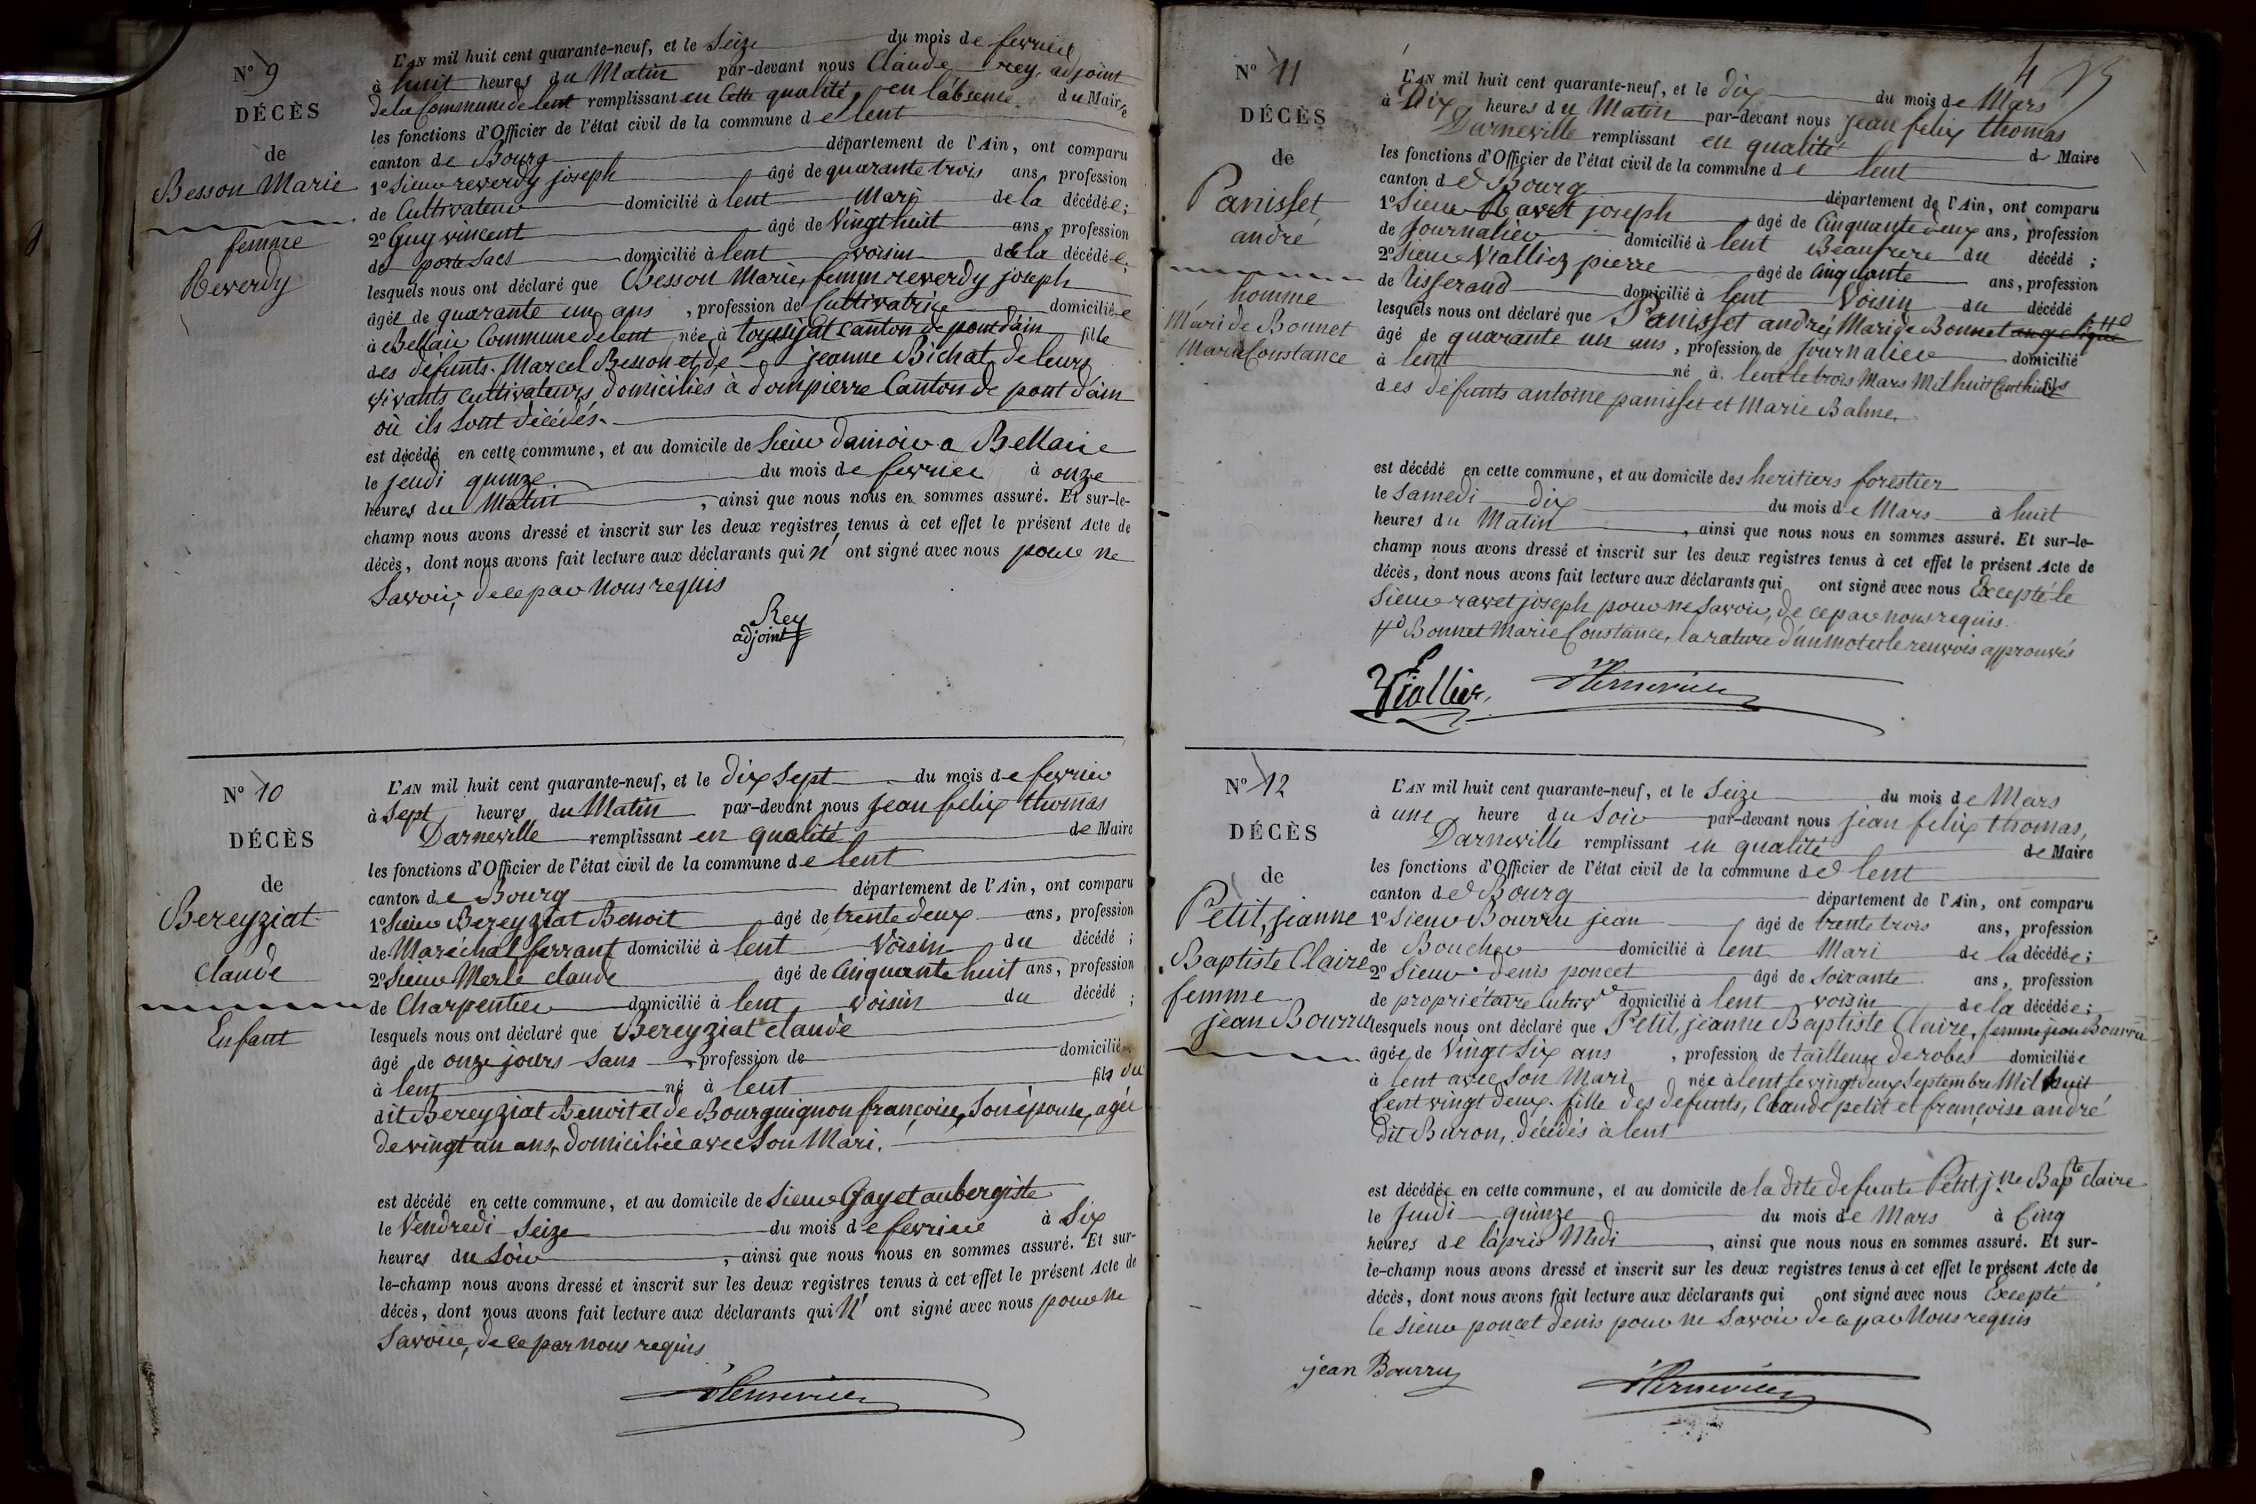 N° 9
DÉCÈS
de
Besson Marie
femme
Reverdy
L'AN mil huit cent quarante-neuf, et le Seize du mois de fevrier
à huit heures du Matin par-devant nous Claude rey, adjoint
de la Commune de lent remplissant en Cette qualité, en l'absence du Maire
les fonctions d'Officier de l'état civil de la commune de lent
canton de Bourg département de l'Ain, ont comparu
1° Sieur reverdy joseph âgé de quarante trois ans, profession
de Cultivateur domicilié à lent Mari de la décédée;
2° Guy vincent âgé de Vingt huit ans, profession
de porte Sacs domicilié à lent voisin de la décédée;
lesquels nous ont déclaré que Besson Marie, femme reverdy joseph
âgée de quarante un ans, profession de Cultivatrice domiciliée
à Bellair Commune de lent née à toussiat canton de pont d'ain fille
des défunts Marcel Besson et de jeanne Bichat, de leurs
vivants cultivateurs, domiciliés à dompierre Canton de pont d'ain
où ils sont décédés.
est décédé en cette commune, et au domicile de Sieur damoir a Bellaire
le jeudi quinze du mois de fevrier à onze
heures du Matin, ainsi que nous nous en sommes assuré. Et sur-le-
champ nous avons dressé et inscrit sur les deux registres tenus à cet effet le présent Acte de
décès, dont nous avons fait lecture aux déclarants qui n' ont signé avec nous pour ne
Savoir, de ce par Nous requis
Rey
adjoint
N° 10
DÉCÈS
de
Bereyziat
claude
Enfant
L'AN mil huit cent quarante-neuf, et le dix Sept du mois de fevrier
à Sept heures du Matin par-devant nous jean felix thomas
Darneville remplissant en qualité de Maire
les fonctions d'Officier de l'état civil de la commune de lent
canton de Bourg département de l'Ain, ont comparu
1° Sieur Bereyziat Benoit âgé de trente deux ans, profession
de Maréchal ferrant domicilié à lent Voisin du décédé;
2° Sieur Merle claude âgé de Cinquante huit ans, profession
de Charpentier domicilié à lent voisin du décédé;
lesquels nous ont déclaré que Bereyziat claude
âgé de onze jours Sans profession de domicilié
à lent né à lent fils du
dit Bereyziat Benoit et de Bourguignon françoise, Son épouse, agée
de vingt un ans, domiciliée avec Son Mari.
est décédé en cette commune, et au domicile de Sieur Gayet aubergiste
le Vendredi Seize du mois de fevrier à Six
heures du Soir, ainsi que nous nous en sommes assuré. Et sur-
le-champ nous avons dressé et inscrit sur les deux registres tenus à cet effet le présent Acte de
décès, dont nous avons fait lecture aux déclarants qui N' ont signé avec nous pour ne
Savoir, de ce par nous requis
N° 11
DÉCÈS
de
Panisset
andré
homme
Mari de Bonnet
Marie Constance
4
L'AN mil huit cent quarante-neuf, et le dix du mois de Mars
à Dix heures du Matin par-devant nous jean felix thomas
Darneville remplissant en qualité de Maire
les fonctions d'Officier de l'état civil de la commune de lent
canton de Bourg département de l'Ain, ont comparu
1° Sieur Ravet joseph âgé de Cinquante deux ans, profession
de Journalier domicilié à lent Beaufrere du décédé;
2° Sieur Vialliez pierre âgé de Cinquante ans, profession
de tisserand domicilié à lent Voisin du décédé
lesquels nous ont déclaré que Panisset andré, Mari de Bonnet angelique
âgé de quarante un ans, profession de Journalier domicilié
à lent né à lent le trois Mars Mil huit Cent huit fils
des défunts antoine panisset et Marie Balme.
est décédé en cette commune, et au domicile des heritiers forestier
le Samedi dix du mois de Mars à huit
heures du Matin, ainsi que nous nous en sommes assuré. Et sur-le-
champ nous avons dressé et inscrit sur les deux registres tenus à cet effet le présent Acte de
décès, dont nous avons fait lecture aux déclarants qui ont signé avec nous Excepté le
Sieur ravet joseph pour ne Savoir, de ce par nous requis
Bonnet Marie Constance, la rature d'un mot et le renvois approuvés
Viallier
N° 12
DÉCÈS
de
Petit, jeanne
Baptiste Claire
femme
jean Bourru
L'AN mil huit cent quarante-neuf, et le Seize du mois de Mars
à une heure du Soir par-devant nous jean felix thomas,
Darneville remplissant en qualité de Maire
les fonctions d'Officier de l'état civil de la commune de lent
canton de Bourg département de l'Ain, ont comparu
1° Sieur Bourru jean âgé de trente trois ans, profession
de Boucher domicilié à lent Mari de la décédée;
2° Sieur denis poncet âgé de Soixante ans, profession
de propriétaire domicilié à lent voisin de la décédée;
lesquels nous ont déclaré que Petit, jeanne Baptiste Claire, femme jean Bourru
âgée de Vingt Six ans, profession de tailleuse de robes domiciliée
à lent avec Son Mari née à lent le vingt deux Septembre Mil huit
Cent vingt deux fille des defunts, Claude petit et françoise andré
dit Buron, décédés à lent
est décédée en cette commune, et au domicile de la dite defunte Petit jne Bapte claire
le Jeudi quinze du mois de Mars à Cinq
heures de l'après Midi, ainsi que nous nous en sommes assuré. Et sur-
le-champ nous avons dressé et inscrit sur les deux registres tenus à cet effet le présent Acte de
décès, dont nous avons fait lecture aux déclarants qui ont signé avec nous Excepté
le Sieur poncet denis pour ne Savoir de ce par Nous requis
jean Bourru